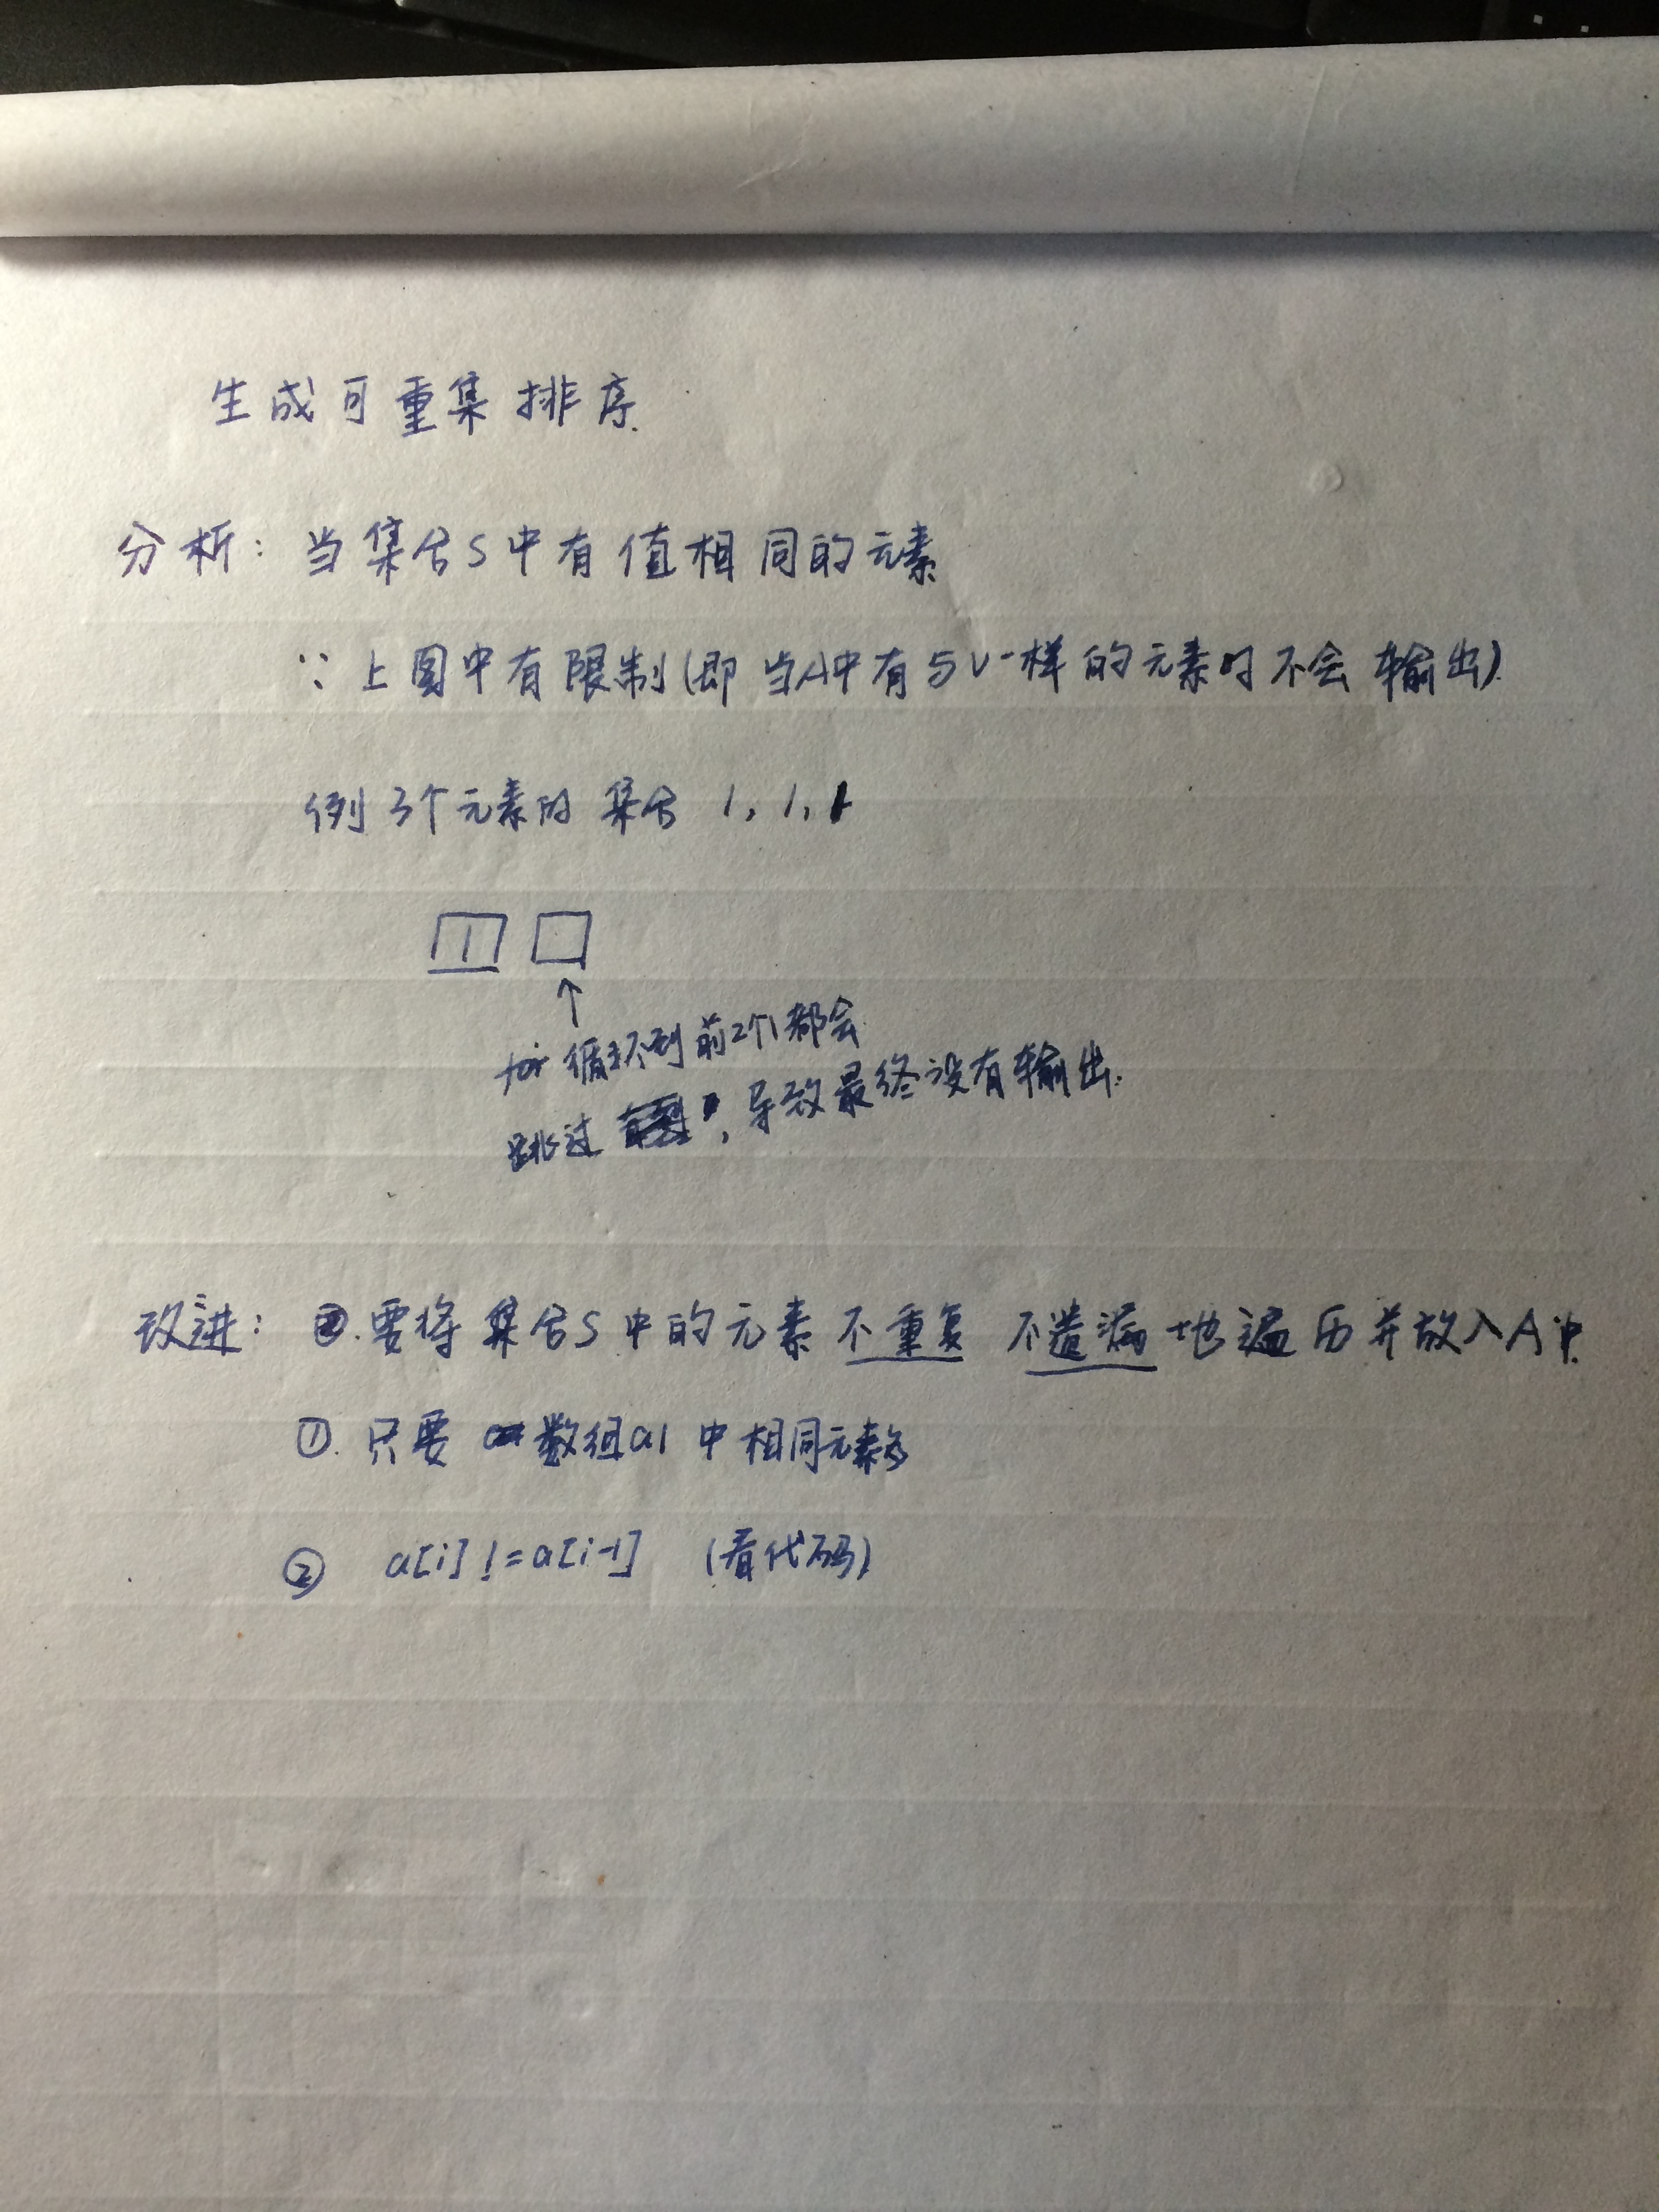 生成可重集排序.
分析: 当集合S中有值相同的元素
∵上图中有限制(即当A中有与V一样的元素时不会输出).
例3个元素的集合 1, 1, 1
1
↑
for 循环到前2个1都会
跳过, 导致最终没有输出.
改进: 要将集合S中的元素不重复 不遗漏地遍历并放入A中.
①. 只要 数组a1 中相同元素
② a[i] != a[i-1] (看代码)